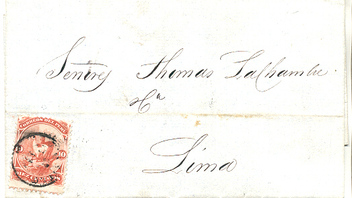 Señores Thomas LaChambre
& Ca
Lima